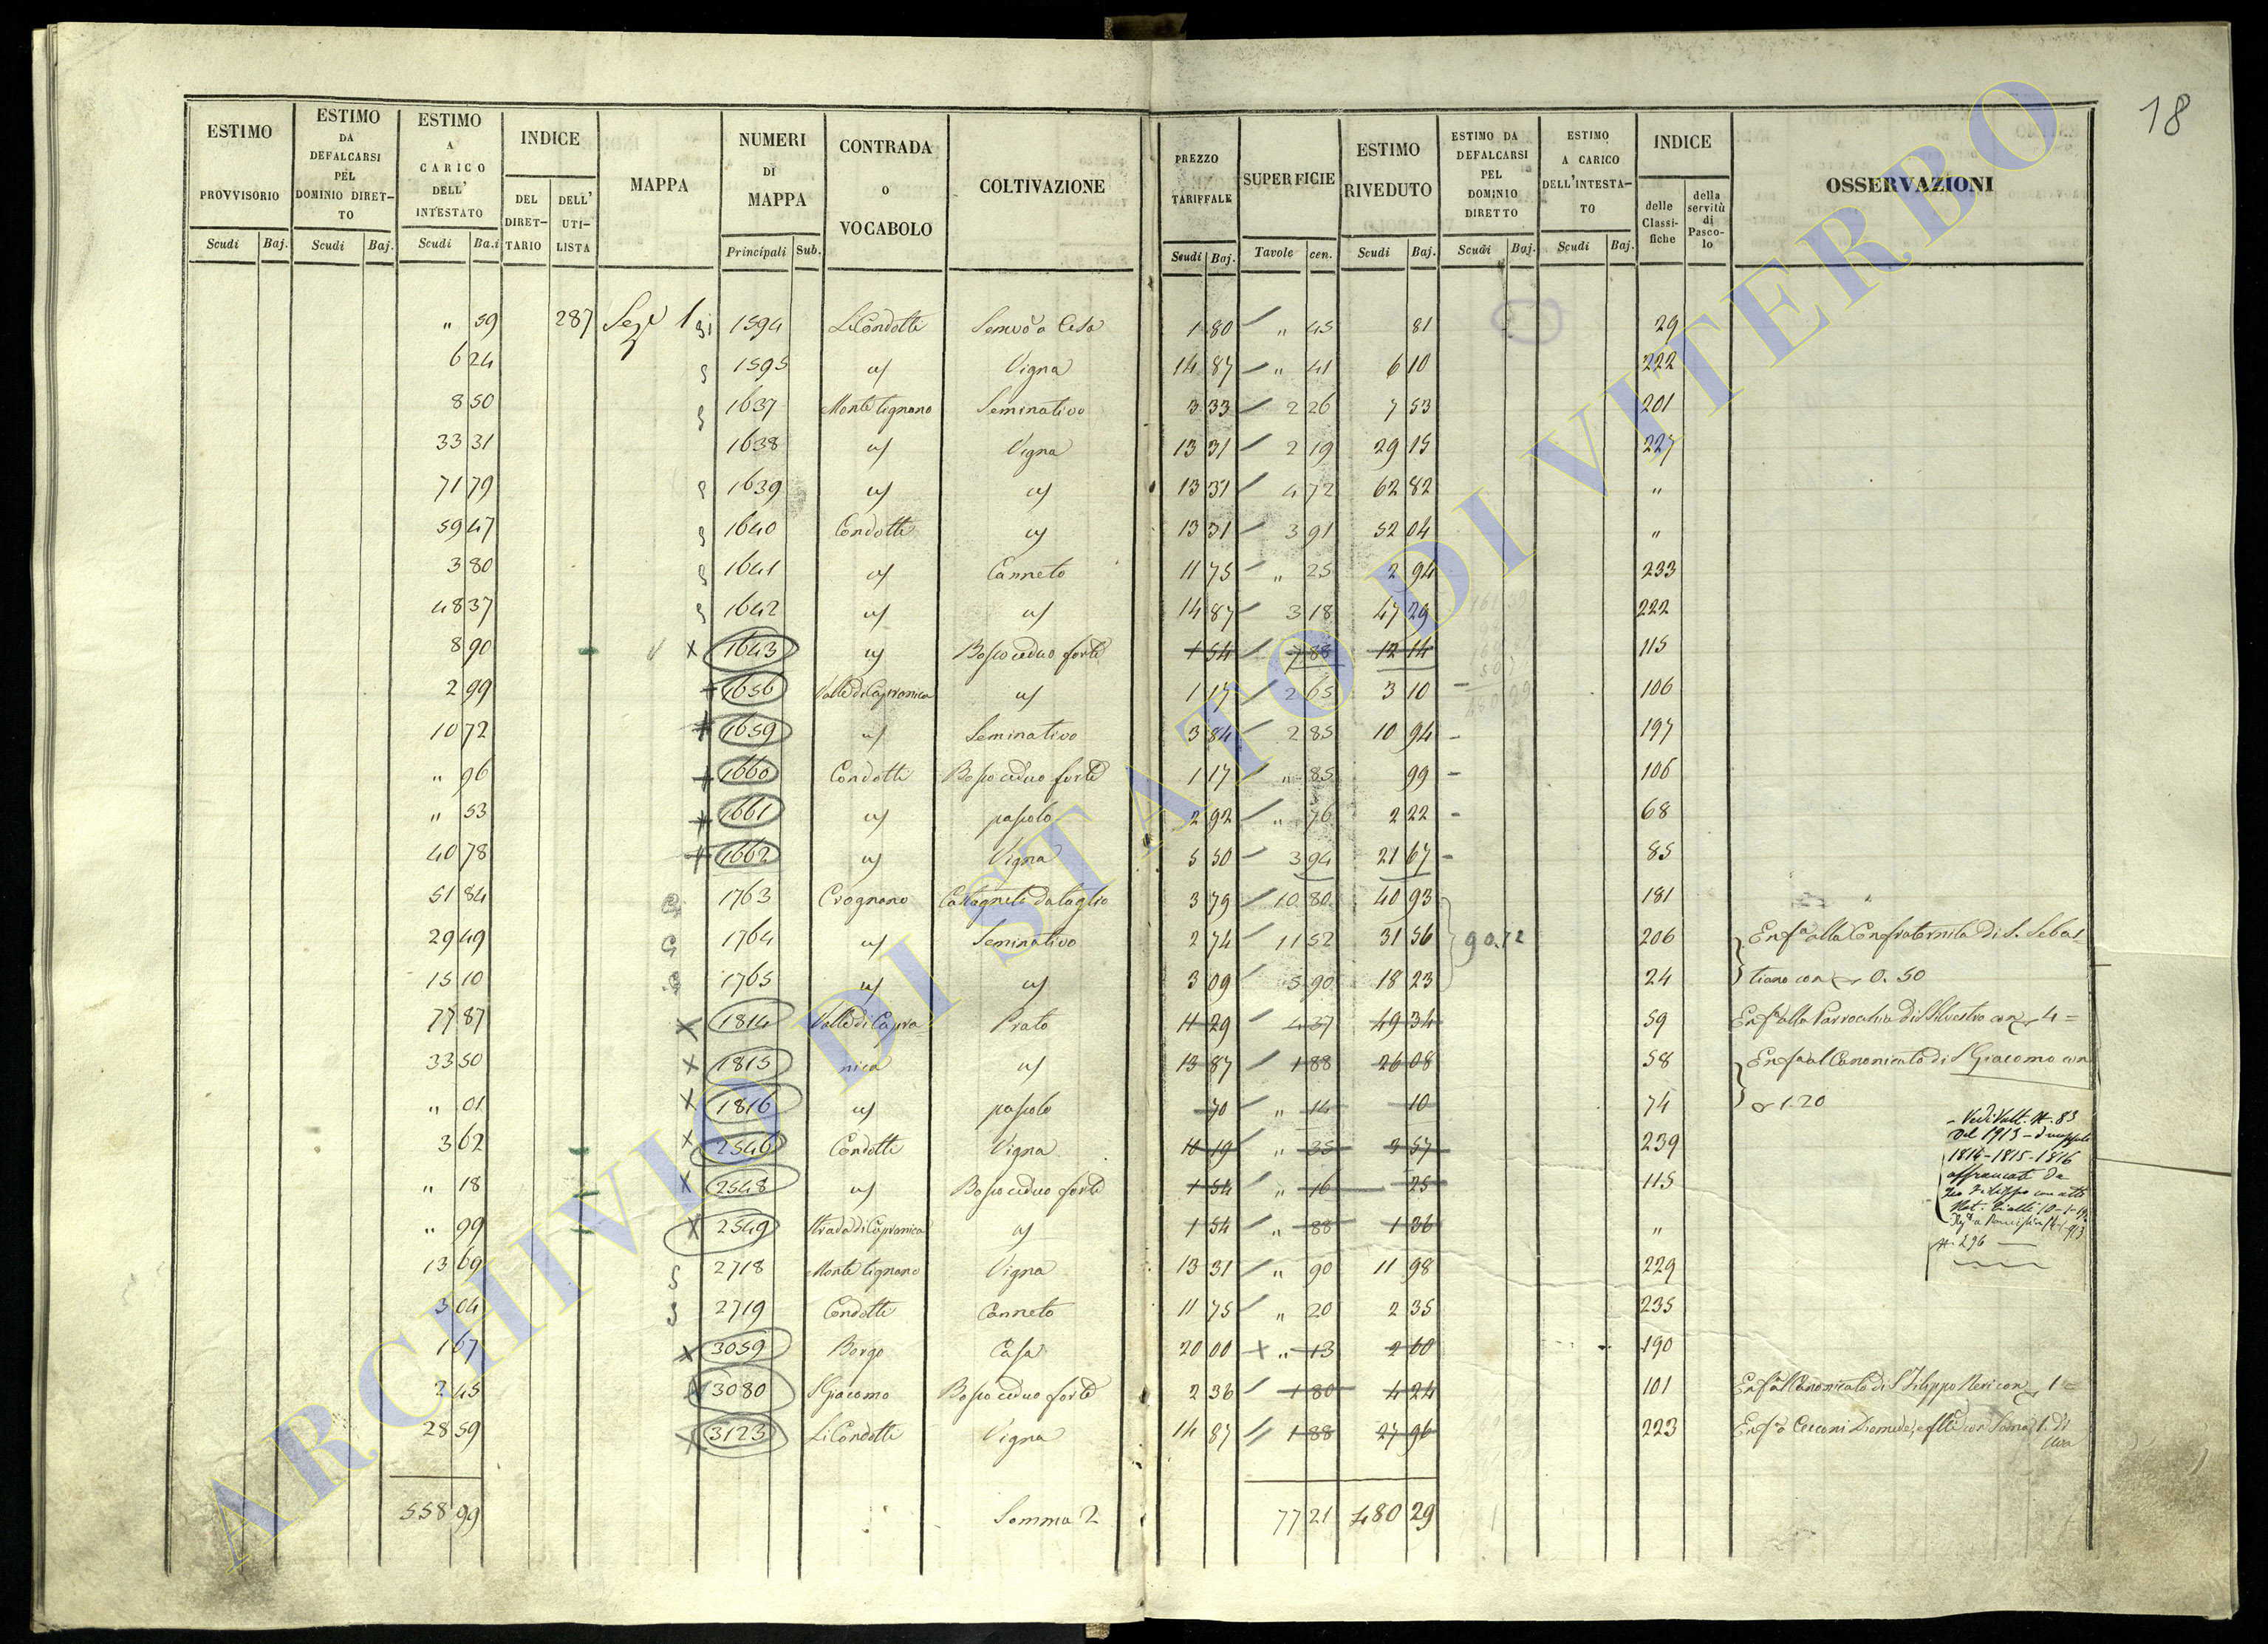 18
ESTIMO PROVVISORIO
ESTIMO DA DEFALCARSI PEL DOMINIO DIRETTO
ESTIMO A CARICO DELL' INTESTATO
INDICE
DEL DIRETTARIO
DELL' UTILISTA
MAPPA
NUMERI DI MAPPA
CONTRADA o VOCABOLO
COLTIVAZIONE
PREZZO TARIFFALE
SUPERFICIE
ESTIMO RIVEDUTO
ESTIMO DA DEFALCARSI PEL DOMINIO DIRETTO
ESTIMO A CARICO DELL'INTESTATO
INDICE
delle Classifiche
della servitù di Pascolo
OSSERVAZIONI
Scudi Baj. Scudi Baj. Scudi Ba.i Principali Sub. Scudi Baj. Tavole cen. Scudi Baj. Scudi Baj. Scudi Baj.
" 59 287 1594 Li Condotti 1 80 " 45 81 29
6 24 1595 Vigna 14 87 " 41 6 10 222
8 50 1637 Monte tignano Seminativo 3 33 2 26 7 53 201
33 31 1638 Vigna 13 31 2 19 29 15 227
71 79 1639 13 31 4 72 62 82 "
59 47 1640 Condotti 13 31 3 91 52 04 "
3 80 1641 Canneto 11 75 " 25 2 94 233
48 37 1642 14 87 3 18 47 29 222
8 90 X 1643 Bosco ceduo forte 1 54 7 88 12 14 115
2 99 1656 Valle di Capranica 1 17 2 65 3 10 106
10 72 1659 Seminativo 3 84 2 85 10 94 197
" 96 1660 Condotti Bosco ceduo forte 1 17 " 85 99 106
" 53 1661 pascolo 2 92 " 76 2 22 68
40 78 1662 Vigna 5 50 3 94 21 67 85
51 84 1763 Crognano Castagneto da taglio 3 79 10 80 40 93 181
29 49 1764 Seminativo 2 74 11 52 31 56 90.72 206 Enf.a alla Confraternita di S. Sebas
15 10 1765 3 09 5 90 18 23 24 tiano con 0. 50
77 87 X 1814 Valle di Capra Prato 11 29 4 37 49 34 59 Enf.a alla Parrocchia di S. Silvestro con 4 =
33 50 X 1815 nica 13 87 1 88 26 08 58 Enf.a al Canonicato di S. Giacomo con
" 01 X 1816 pascolo 70 " 14 10 74 1.20
3 62 X 2546 Condotti Vigna 10 19 " 35 3 57 239
" 18 X 2548 Bosco ceduo forte 1 54 " 16 25 115
" 99 X 2549 Strada di Capranica 1 54 " 88 1 36 "
13 69 2718 Monte tignano Vigna 13 31 " 90 11 98 229
3 04 2719 Condotti Canneto 11 75 " 20 2 35 235
1 67 X 3059 Borgo Casa 20 00 " 13 2 60 190
2 45 3080 S. Giacomo Bosco ceduo forte 2 36 1 80 4 24 101 Enf.a al Canonicato di S. Filippo Neri con 1 =
28 59 X 3123 Li Condotti Vigna 14 87 1 88 27 96 223 Enf.a Cecconi Diomede
558 99 Somma 2 77 21 480 29
Vedi Volt. N. 83
del 1913
1814-1815-1816
affrancati da
con atto
N. 296
ARCHIVIO DI STATO DI VITERBO